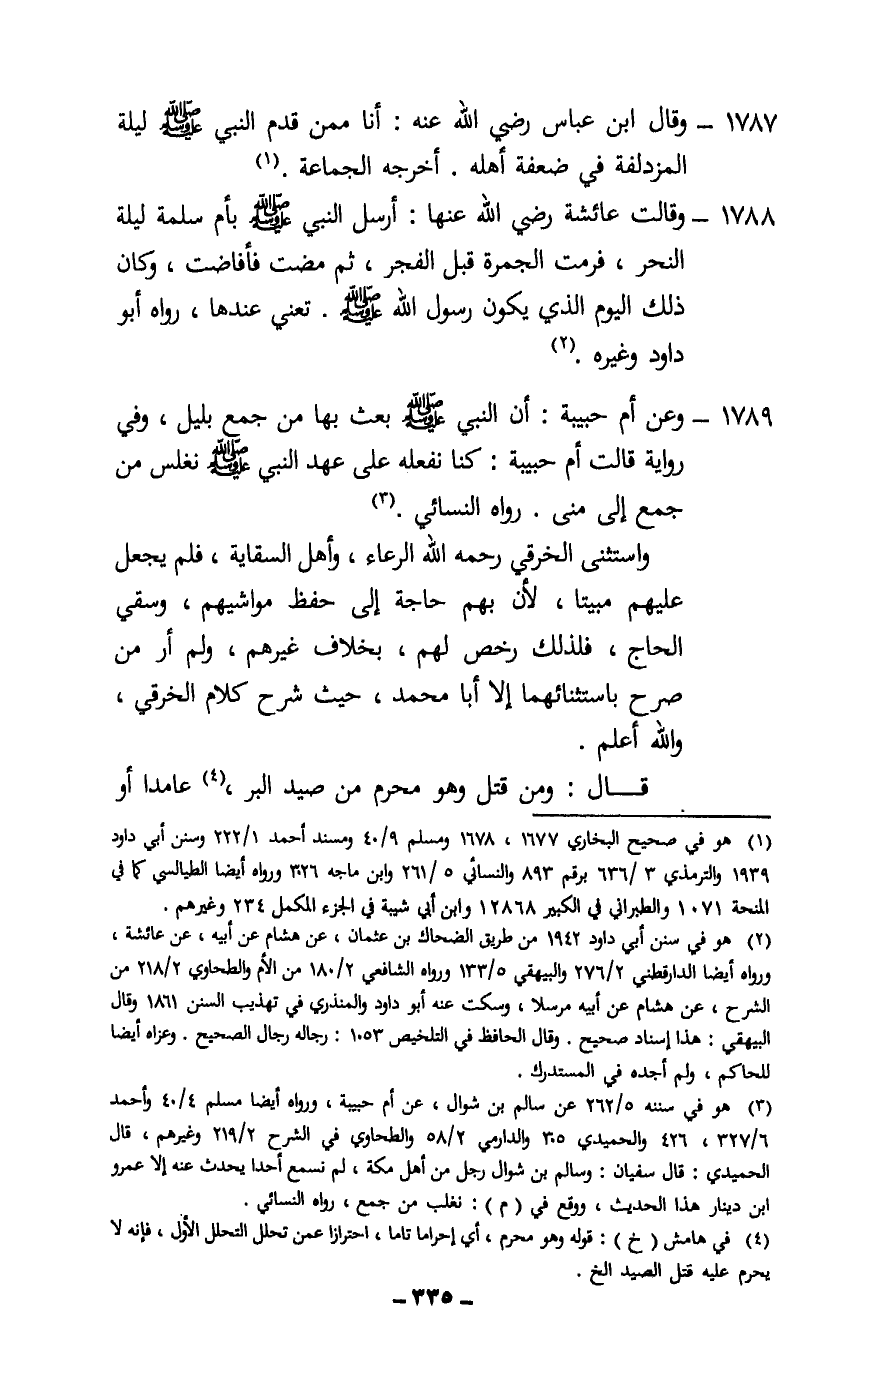 ١٧٨٧ ــ وقال ابن عباس رضي الله عنه : أنا ممن قدم النبي ﷺ ليلة
المزدلفة في ضعفة أهله . أخرجه الجماعة .(١)
١٧٨٨ ــ وقالت عائشة رضي الله عنها : أرسل النبي ﷺ بأم سلمة ليلة
النحر ، فرمت الجمرة قبل الفجر ، ثم مضت فأفاضت ، وكان
ذلك اليوم الذي يكون رسول الله ﷺ . تعني عندها ، رواه أبو
داود وغيره .(٢)
١٧٨٩ ــ وعن أم حبيبة : أن النبي ﷺ بعث بها من جمع بليل ، وفي
رواية قالت أم حبيبة : كنا نفعله على عهد النبي ﷺ نغلس من
جمع إلى منى . رواه النسائي .(٣)
واستثنى الخرقي رحمه الله الرعاء ، وأهل السقاية ، فلم يجعل
عليهم مبيتا ، لأن بهم حاجة إلى حفظ مواشيهم ، وسقي
الحاج ، فلذلك رخص لهم ، بخلاف غيرهم ، ولم أر من
صرح باستثنائهما إلا أبا محمد ، حيث شرح كلام الخرقي ،
والله أعلم .
قـــال : ومن قتل وهو محرم من صيد البر ،(٤) عامدا أو
(١) هو في صحيح البخاري ١٦٧٧ ، ١٦٧٨ ومسلم ٤٠/٩ ومسند أحمد ٢٢٢/١ وسنن أبي داود
١٩٣٩ والترمذي ٣ /٦٣٦ برقم ٨٩٣ والنسائي ٥ /٢٦١ وابن ماجه ٣٠٢٦ ورواه أيضا الطيالسي كما في
المنحة ١٠٧١ والطبراني في الكبير ١٢٨٦٨ وابن أبي شيبة في الجزء المكمل ٢٣٤ وغيرهم .
(٢) هو في سنن أبي داود ١٩٤٢ من طريق الضحاك بن عثمان ، عن هشام عن أبيه ، عن عائشة ،
ورواه أيضا الدارقطني ٢٧٦/٢ والبيهقي ١٣٣/٥ ورواه الشافعي ١٨٠/٢ من الأم والطحاوي ٢١٨/٢ من
الشرح ، عن هشام عن أبيه مرسلا ، وسكت عنه أبو داود والمنذري في تهذيب السنن ١٨٦١ وقال
البيهقي : هذا إسناد صحيح . وقال الحافظ في التلخيص ١٠٥٣ : رجاله رجال الصحيح . وعزاه أيضا
للحاكم ، ولم أجده في المستدرك .
(٣) هو في سننه ٢٦٢/٥ عن سالم بن شوال ، عن أم حبيبة ، ورواه أيضا مسلم ٤٠/٤ وأحمد
٣٢٧/٦ ، ٤٢٦ والحميدي ٣٠٥ والدارمي ٥٨/٢ والطحاوي في الشرح ٢١٩/٢ وغيرهم ، قال
الحميدي : قال سفيان : وسالم بن شوال رجل من أهل مكة ، لم نسمع أحدا يحدث عنه إلا عمرو
ابن دينار هذا الحديث ، ووقع في ( م ) : نغلب من جمع ، رواه النسائي .
(٤) في هامش ( خ ) : قوله وهو محرم ، أي إحراما تاما ، احترازا عمن تحلل التحلل الأول ، فإنه لا
يحرم عليه قتل الصيد الخ .
ــ ٣٣٥ ــ